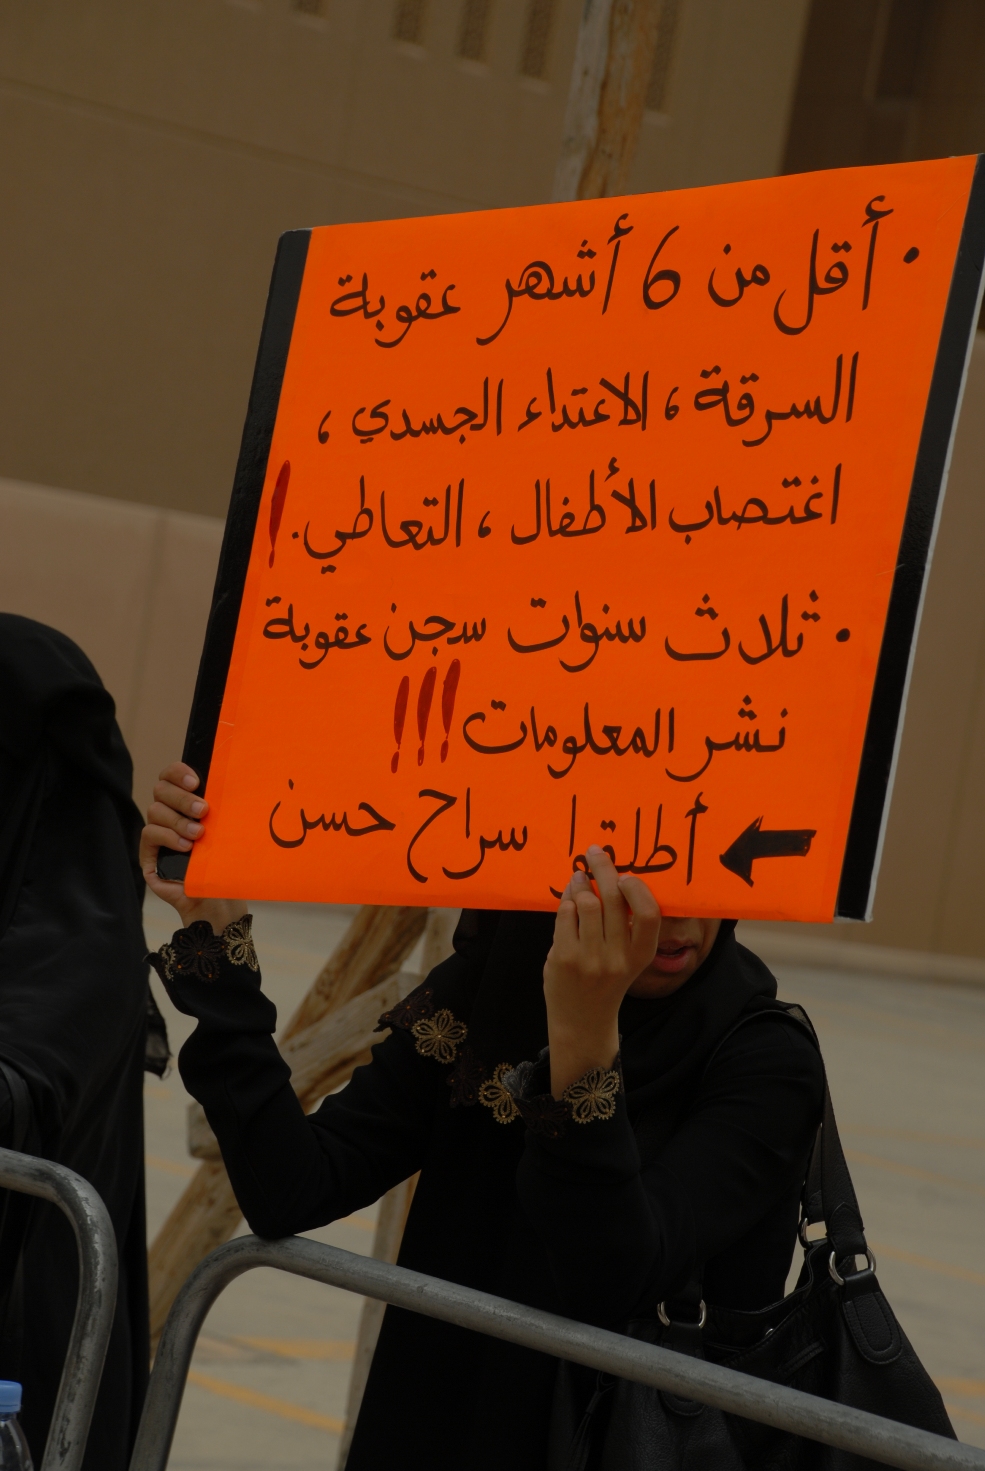 • أقل من 6 أشهر عقوبة
السرقة، الاعتداء الجسدي،
اغتصاب الأطفال، التعاطي.!
• ثلاث سنوات سجن عقوبة
نشر المعلومات!!!
← أطلقوا سراح حسن